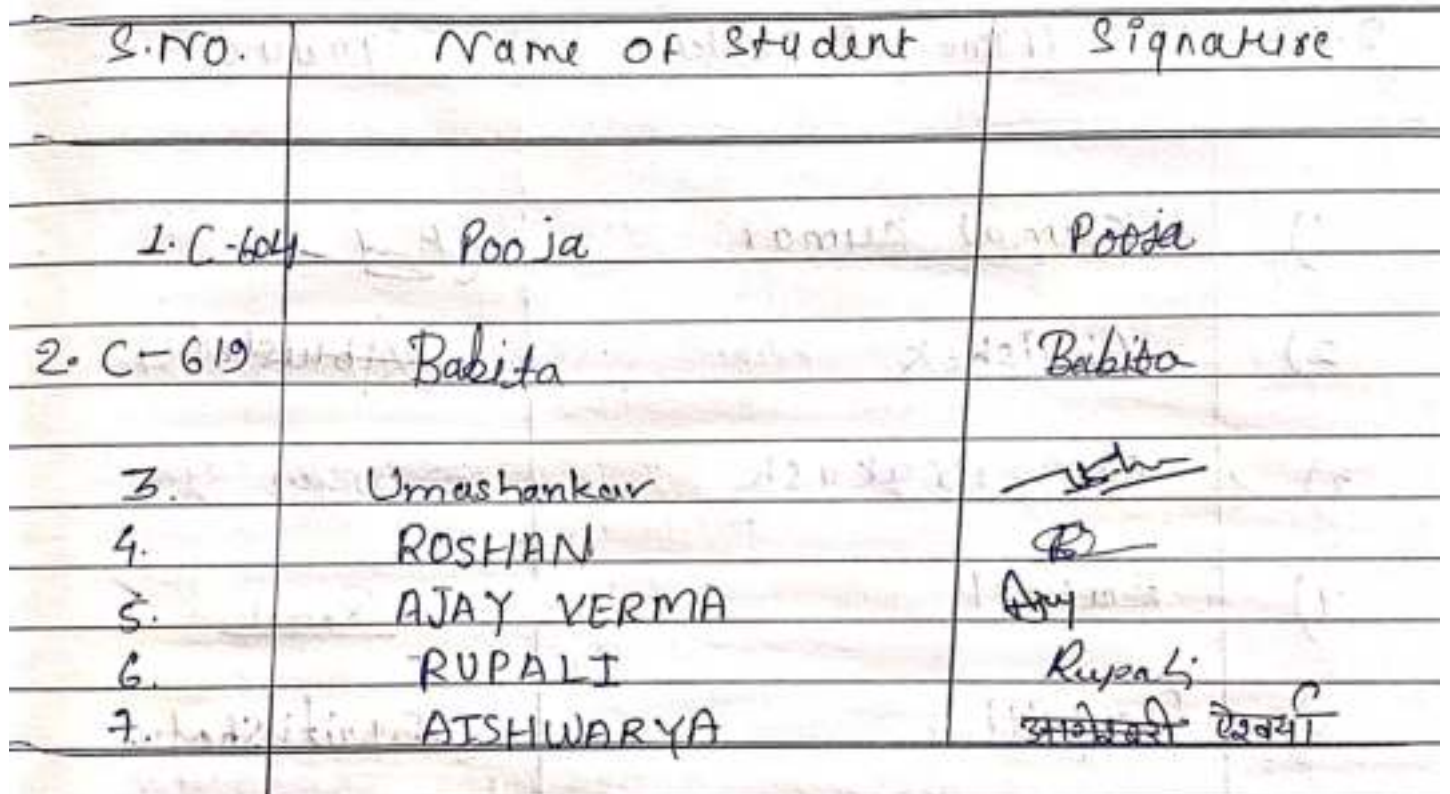 S.NO. Name of Student Signature
1. C-604 Pooja Pooja
2. C-619 Babita Babita
3. Umashankar
4. ROSHAN
5. AJAY VERMA Ajay
6. RUPALI Rupali
7. AISHWARYA ऐश्वर्या